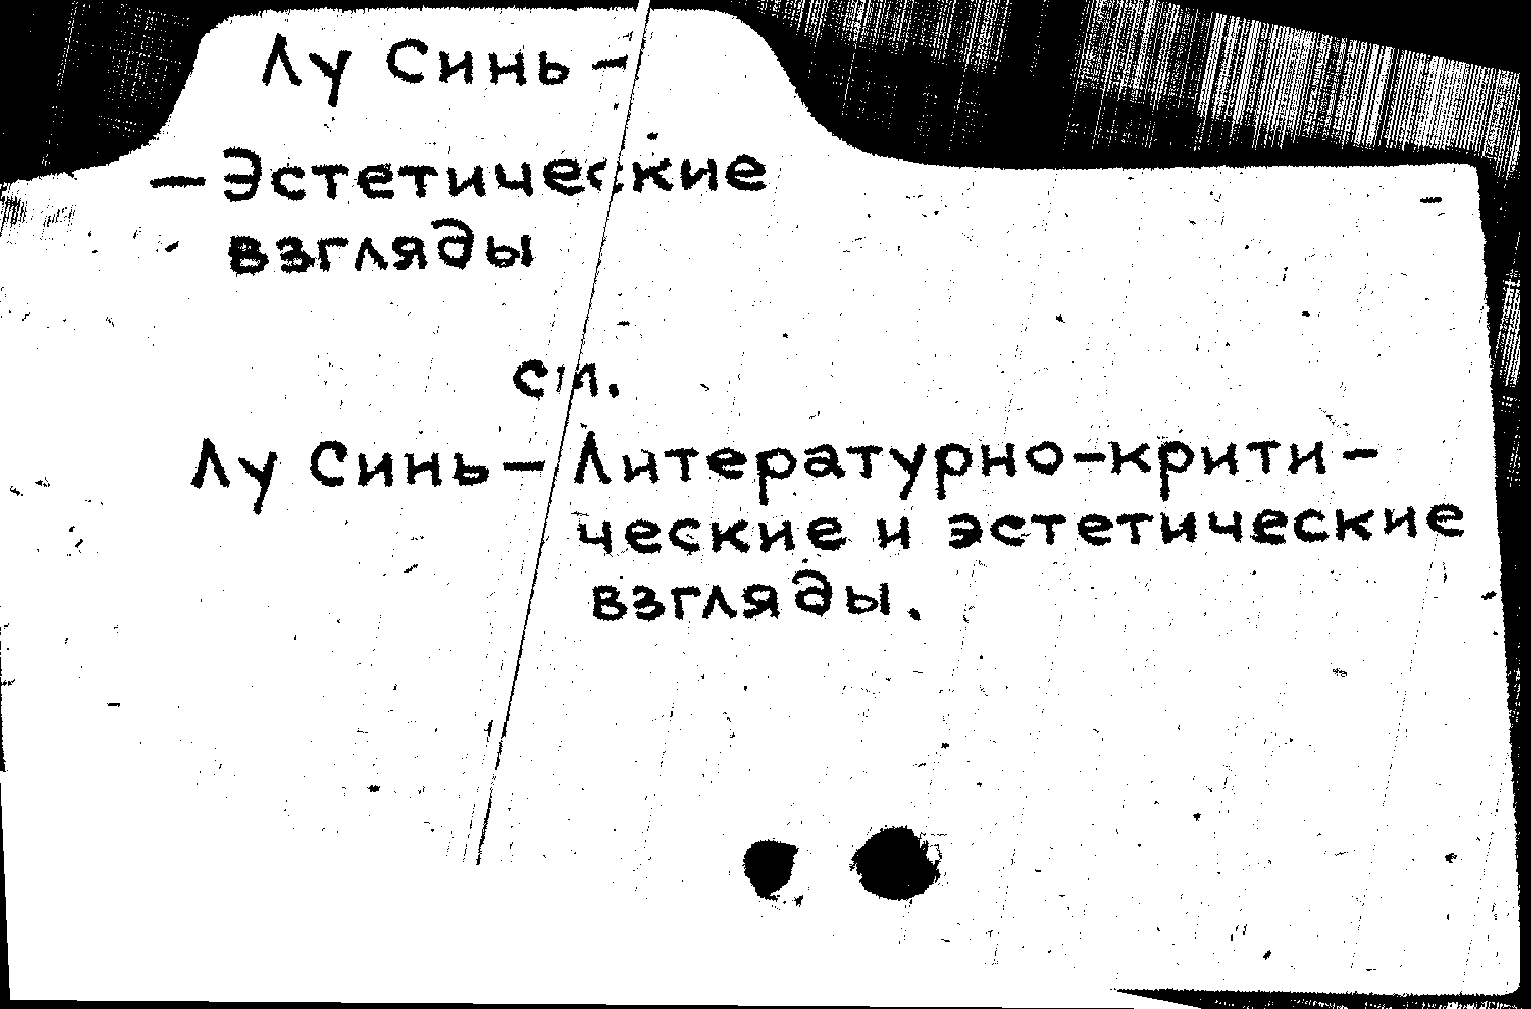 Лу Синь –
– Эстетические
взгляды
см.
Лу Синь – Литературно-крити-
ческие и эстетические
взгляды.